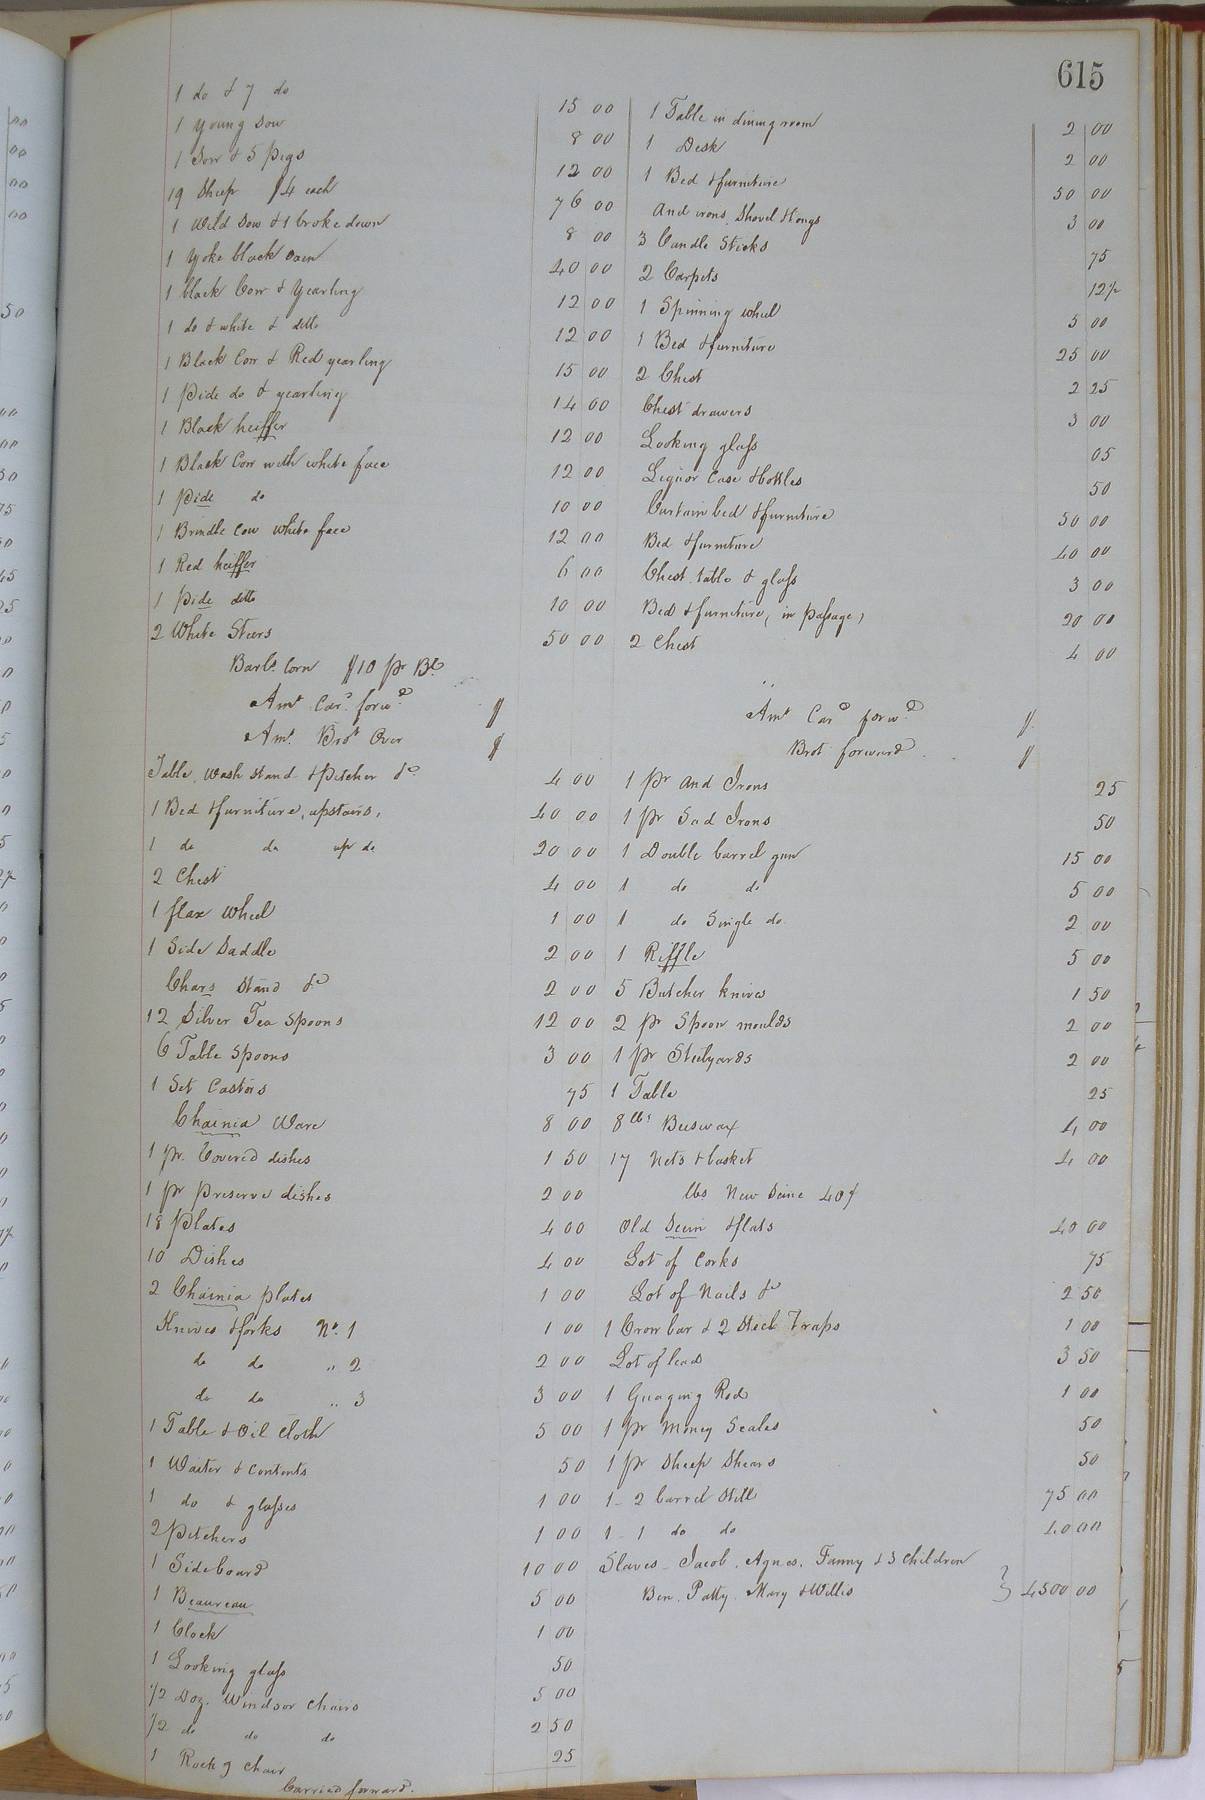 615
1 do & 7 do 15 00
1 Young Sow 8 00
1 Sow & 5 pigs 12 00
19 Sheep $4 each 76 00
1 Wild Sow & 1 broke down 8 00
1 Yoke black Oxen 40 00
1 black Cow & Yearling 12 00
1 do & white & ditto 12 00
1 Black Cow & Red yearling 15 00
1 Pide do & yearling 14 00
1 Black heiffer 12 00
1 Black Cow with white face 12 00
1 Pide do 10 00
1 Brindle Cow white face 12 00
1 Red heiffer 6 00
1 Pide ditto 10 00
2 White Steers 50 00
Barls. Corn $10 pr Bl.
Amt. Card. forwd. $
1 Table in dining room 2 00
1 Desk 2 00
1 Bed & furniture 50 00
And irons, Shovel & tongs 3 00
3 Candle Sticks 75
2 Carpets 12½
1 Spinning wheel 5 00
1 Bed & furniture 25 00
2 Chest 2 25
Chest drawers 3 00
Looking glass 05
Liquor Case & bottles 50
Curtain bed & furniture 50 00
Bed & furniture 40 00
Chest. table & glass 3 00
Bed & furniture, (in passage) 20 00
2 Chest 4 00
Amt Card forwd. $
Amt. Brot Over $
Table, Wash Stand & Pitcher &c 4 00
1 Bed & furniture, upstairs, 40 00
1 do do up do 20 00
2 Chest 4 00
1 flax Wheel 1 00
1 Side Saddle 2 00
Chars Stand &c 2 00
12 Silver Tea Spoons 12 00
6 Table Spoons 3 00
1 Set Castors 75
Chainia Ware 8 00
1 pr. Covered dishes 1 50
1 pr Preserve dishes 2 00
18 Plates 4 00
10 Dishes 4 00
2 Chainia plates 1 00
Knives & forks No. 1 1 00
do do " 2 2 00
do do " 3 3 00
1 Table & Oil Cloth 5 00
1 Waiter & Contents 50
1 do & glasses 1 00
2 Pitchers 1 00
1 Sideboard 10 00
1 Beaureau 5 00
1 Clock 1 00
1 Looking glass 50
1/2 Doz. Windsor Chairs 5 00
1/2 do do do 2 50
1 Rockg Chair 25
Carried forward.
Brot forward. $
1 Pr And Irons 25
1 pr Sad Irons 50
1 Double barrel gun 15 00
1 do do 5 00
1 do Single do. 2 00
1 Riffle 5 00
5 Butcher knives 1 50
2 pr Spoon moulds 2 00
1 pr Steelyards 2 00
1 Table 25
8 lbs Beeswax 4 00
17 Nets & basket 4 00
lbs. New Seine 40¢
Old Sein & flats 40 00
Lot of Corks 75
Lot of Nails &c 2 50
1 Crow bar & 2 Steel Traps 1 00
Lot of lead 3 50
1 Guaging Rod 1 00
1 pr Money Scales 50
1 pr Sheep Shears 50
1 - 2 barrel Still 75 00
1 - 1 do do 40 00
Slaves - Jacob, Agnes, Fanny & 3 Children
Ben, Patty, Mary & Willis } 4500 00